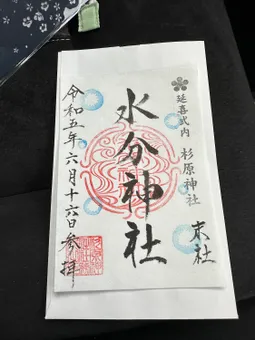 延喜式内 杉原神社
末社
水分神社
令和五年六月十六日参拝